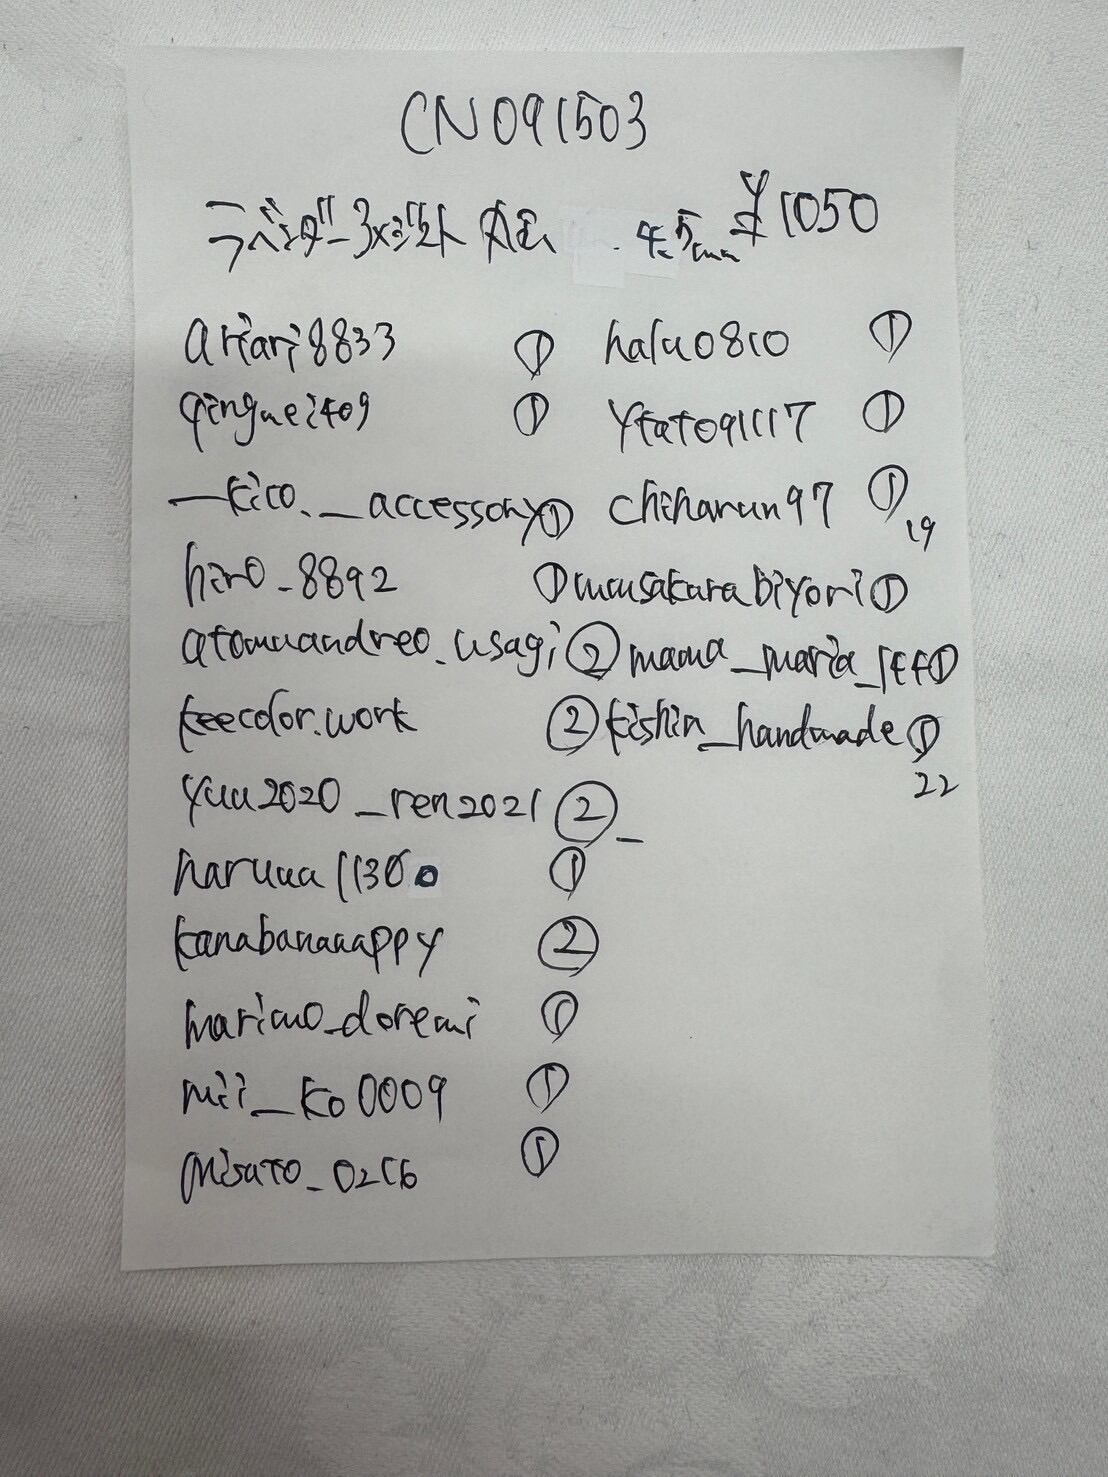 CN091503
ラベンダーアメジスト 4.5mm ¥1050
ariari8833 ①
qingmei409 ①
—kico.__accessory①
hiro_8892 ①
atomuandreo.usagi②
keecolor.work ②
yuu2020_ren2021②_
haruua11300 ①
kanabanaaappy ②
marimo_doremi ①
mii_ko0009 ①
misato_0216 ①
halu0810 ①
ytato91117 ①
chiharun97 ①
19
musakarabiyori①
mama_maria_①
kishin_handmade①
22